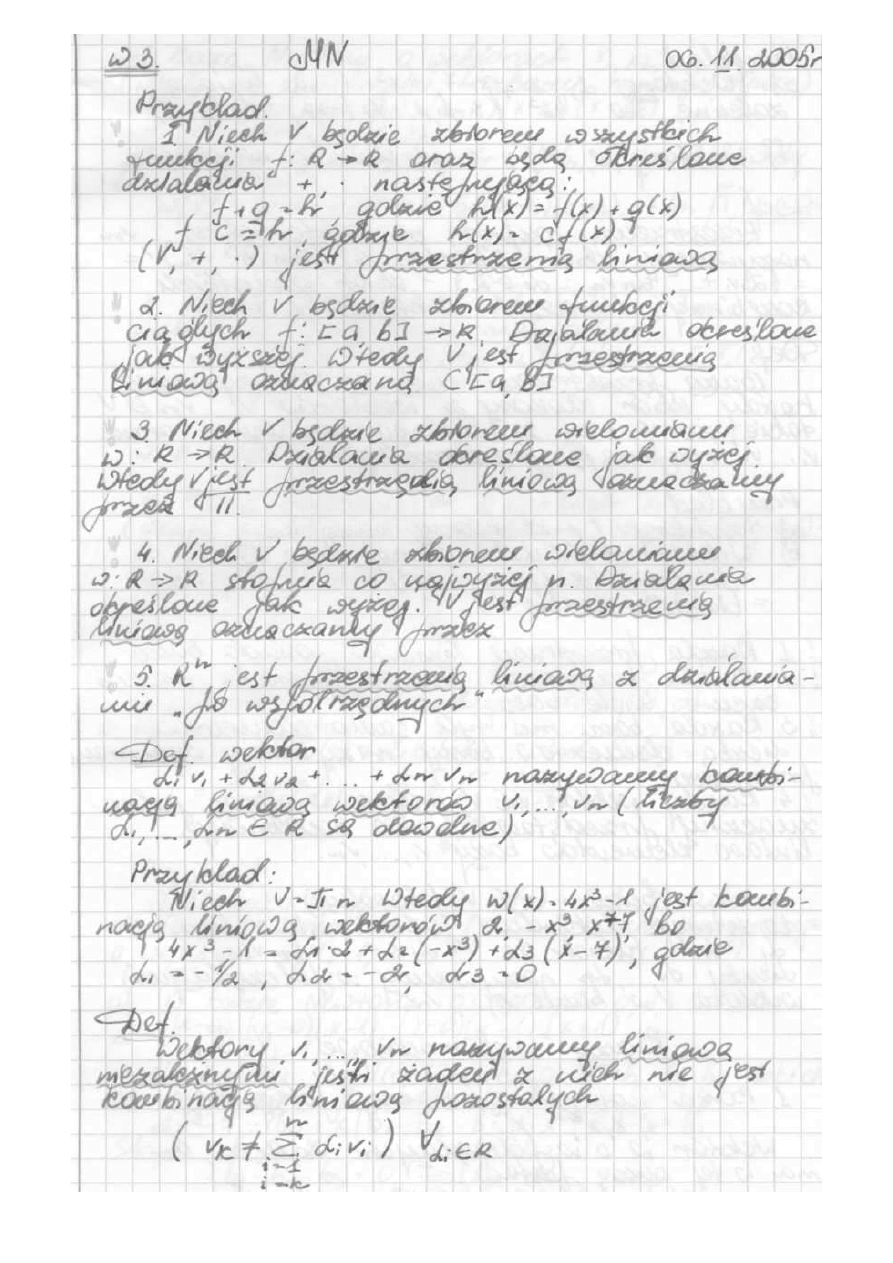 W 3. MN 06.11.2005r
Przykład.
1 Niech V będzie zbiorem wszystkich
funkcji f: R → R oraz będą określone
działania +, · następująco:
f+g=h gdzie h(x)=f(x)+g(x)
f c=h, gdzie h(x)=cf(x)
(V, +, ·) jest przestrzenią liniową
2. Niech V będzie zbiorem funkcji
ciągłych f: [a,b] → R. Działania określone
jak wyższej. Wtedy V jest przestrzenią
liniową oznaczaną C[a,b]
3. Niech V będzie zbiorem wielomianu
w: R → R Działania określone jak wyżej.
Wtedy V jest przestrzenią liniową oznaczamy
przez Π.
4. Niech V będzie zbiorem wielomianu
w: R → R stopnia co najwyżej n. Działania
określone jak wyżej. V jest przestrzenią
liniową oznaczamy przez
5. Rⁿ jest przestrzenią liniową z działania-
mi „po współrzędnych"
Def. wektor
α₁v₁ + α₂v₂ + ... + αₙvₙ nazywamy kombi-
nacją liniową wektorów v₁, ..., vₙ (liczby
α₁, ..., αₙ ∈ R są dowolne)
Przykład:
Niech V=Πn Wtedy w(x)=4x³-1 jest kombi-
nacją liniową wektorów 2, -x³, x-7 bo
4x³-1=α₁·2+α₂(-x³)+α₃(x-7), gdzie
α₁=-1/2, α₂=-2, α₃=0
Def.
Wektory v₁, ..., vₙ nazywamy liniową
niezależnymi jeśli żaden z nich nie jest
kombinacją liniową pozostałych
( vₖ ≠ Σ αᵢvᵢ ) ∀ αᵢ∈R
n
i=1
i=k